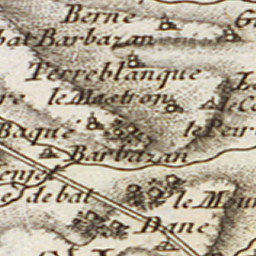 Berne
bat Barbazan
Terreblanque
le Mastron
le Ce
Baqué
le Peir
Barbazan
debat
le Mou
Dané